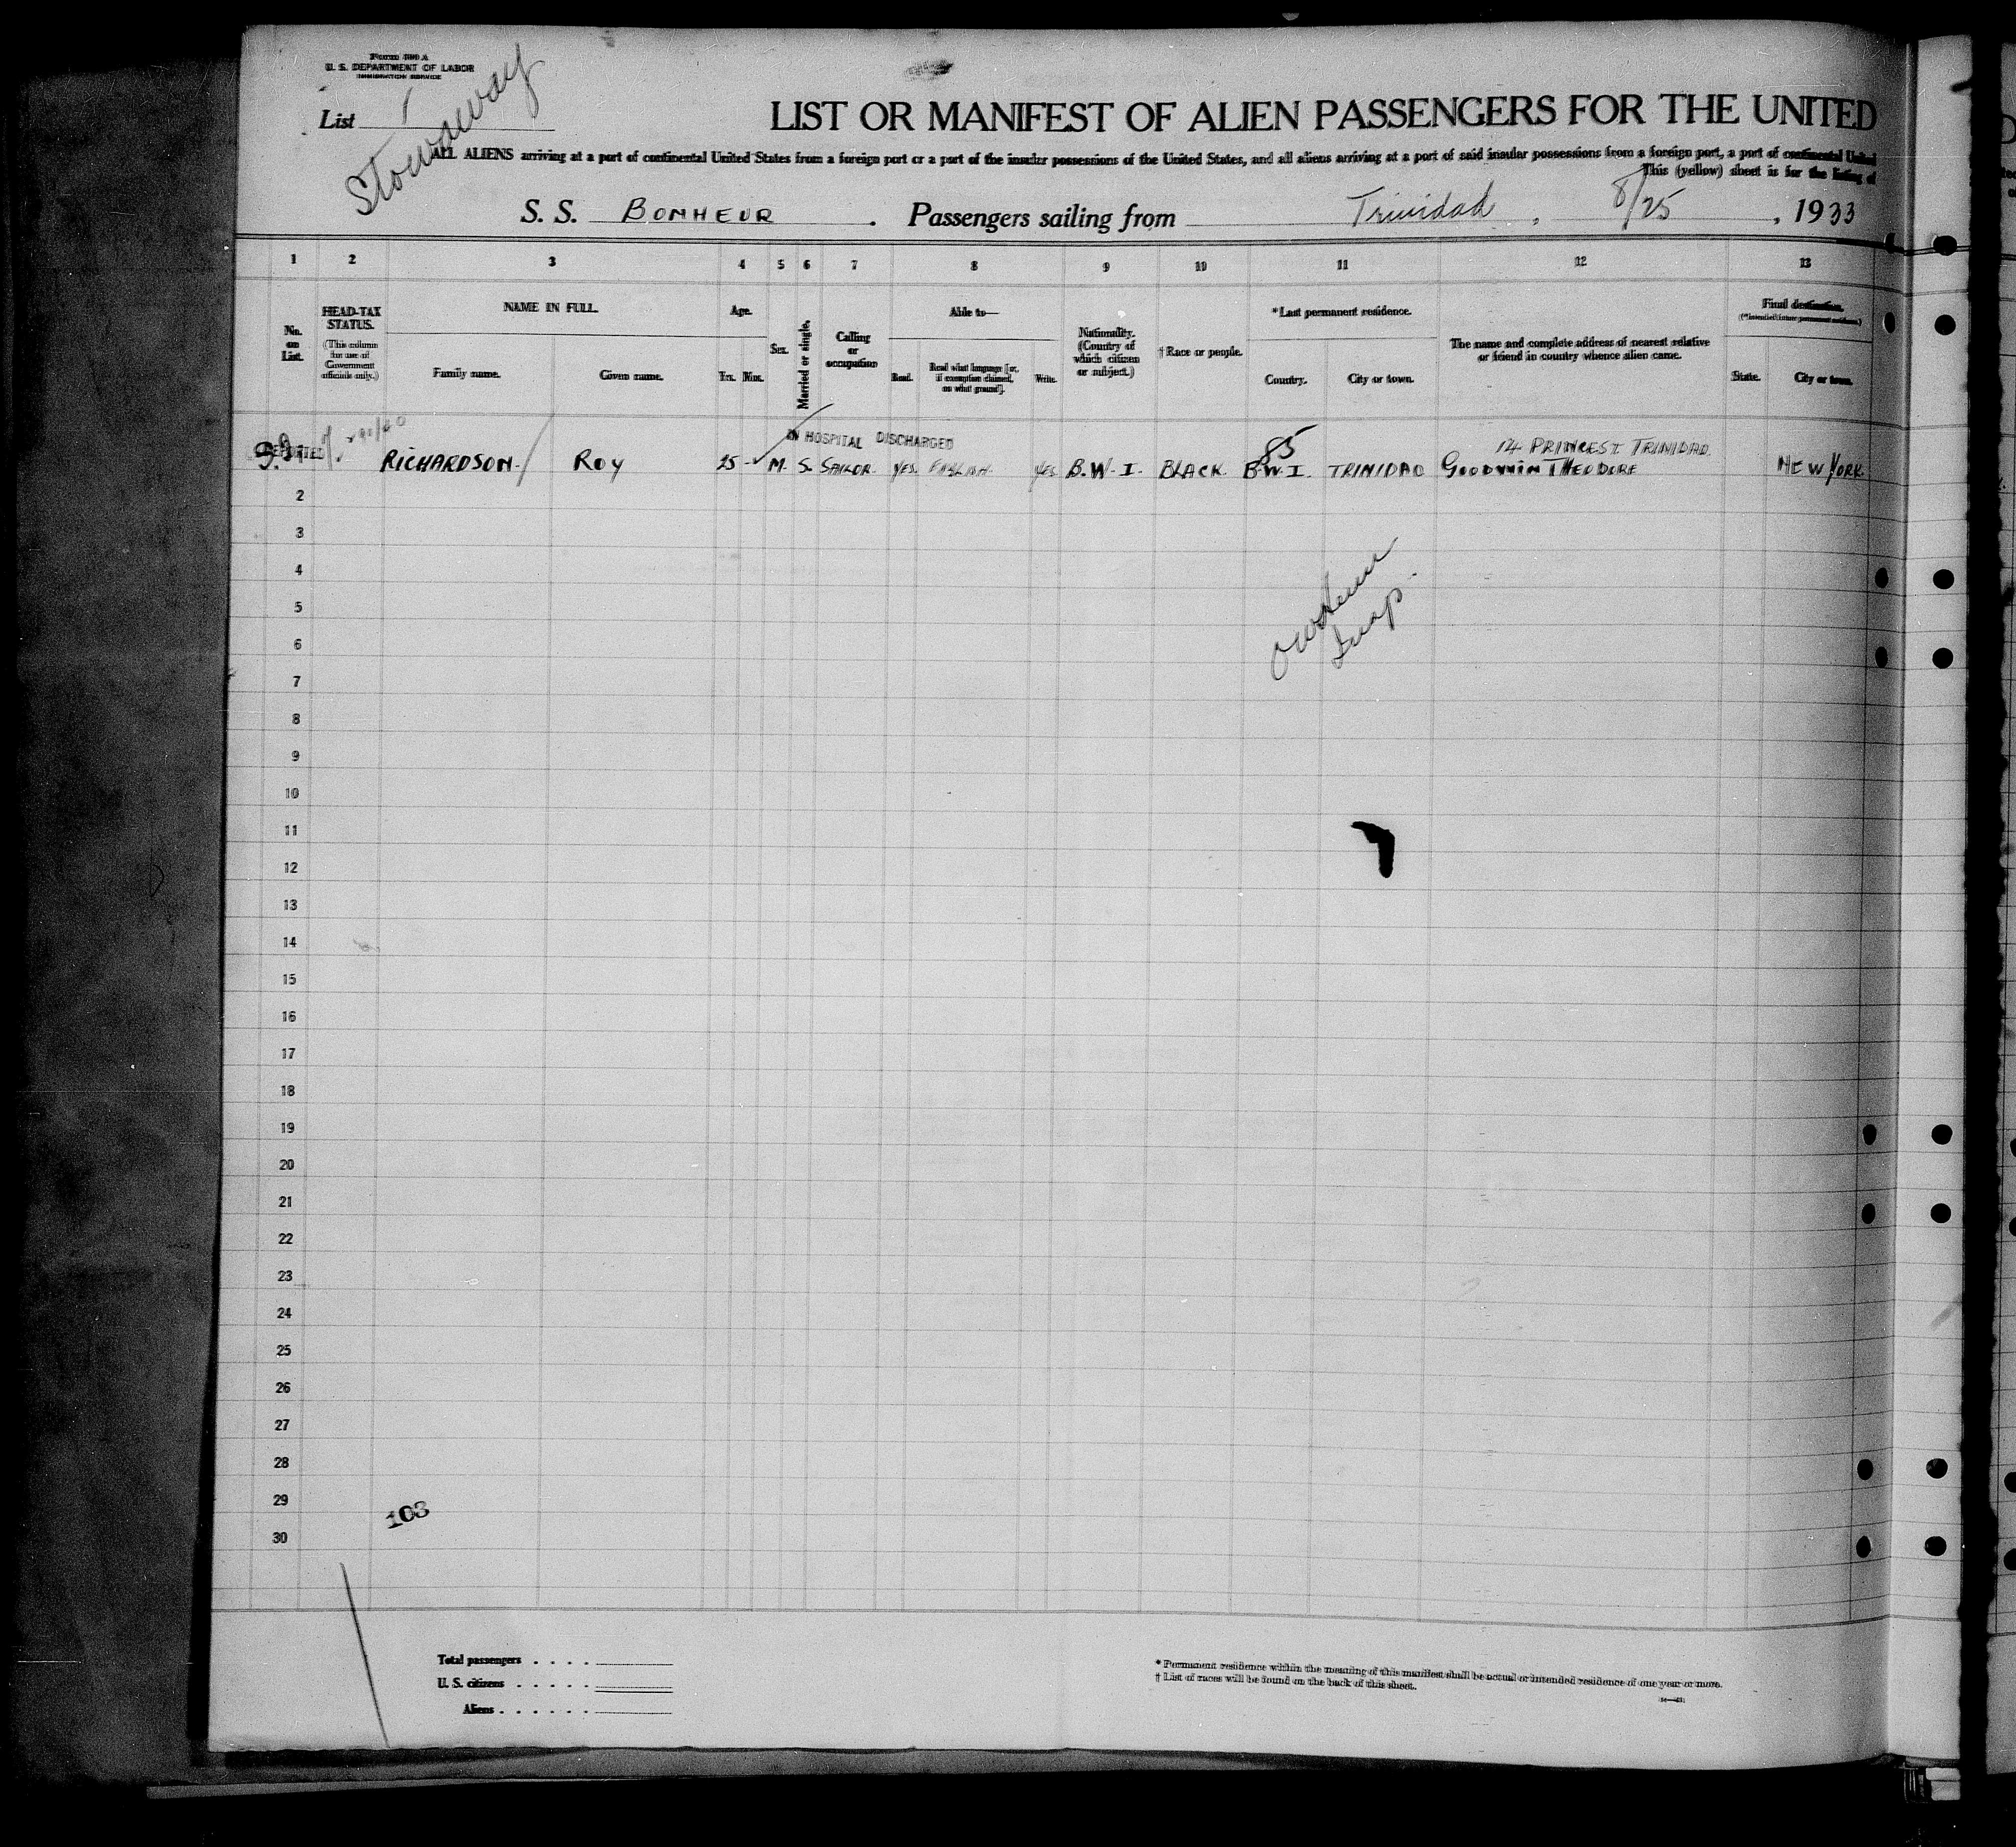 Form 500 A
U. S. DEPARTMENT OF LABOR
IMMIGRATION SERVICE
List 1
Stowaway
LIST OR MANIFEST OF ALIEN PASSENGERS FOR THE UNITED
ALL ALIENS arriving at a port of continental United States from a foreign port or a port of the insular possessions of the United States, and all aliens arriving at a port of said insular possessions from a foreign port, a port of continental United
This (yellow) sheet is for the listing of
S. S. BONHEUR . Passengers sailing from Trinidad , 8/25 , 1933
1 2 3 4 5 6 7 8 9 10 11 12 13
No. on List.
HEAD-TAX STATUS.
(This column for use of Government officials only.)
NAME IN FULL
Family name. Given name.
Age.
Yrs. Mos.
Sex.
Married or single.
Calling or occupation
Able to—
Read. Read what language [or, if exemption claimed, on what ground]. Write.
Nationality. (Country of which citizen or subject.)
† Race or people.
*Last permanent residence.
Country. City or town.
The name and complete address of nearest relative or friend in country whence alien came.
Final destination.
(*Intended future permanent residence.)
State. City or town.
IN HOSPITAL DISCHARGED
85
14 PRINCES T TRINIDAD.
DEPORTED RICHARDSON ROY 25 - M. S. SAILOR YES. ENGLISH YES B.W.I. BLACK B.W.I. TRINIDAD GOODWIN THEODORE NEW YORK
2
3
4
5
6
7
8
9
10
11
12
13
14
15
16
17
18
19
20
21
22
23
24
25
26
27
28
29
103
30
Total passengers . . . .
U. S. citizens . . . . .
Aliens . . . . . .
* Permanent residence within the meaning of this manifest shall be actual or intended residence of one year or more.
† List of races will be found on the back of this sheet.